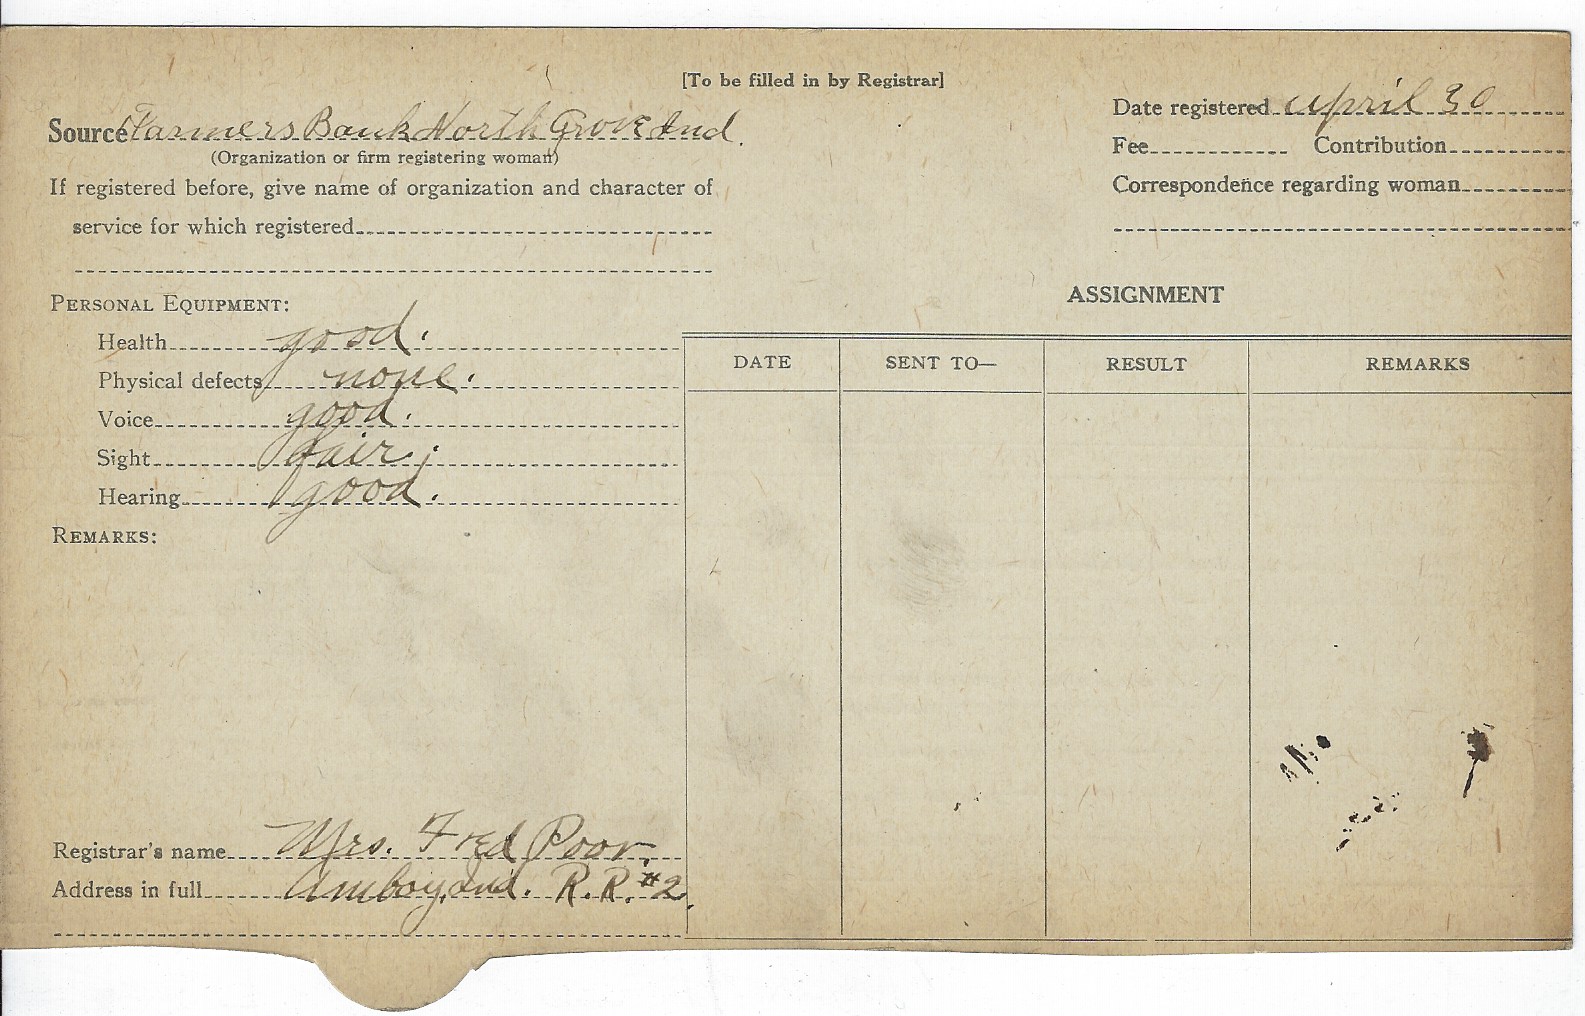 [To be filled in by Registrar]
Source Farmers Bank North Grove Ind.
(Organization or firm registering woman)
If registered before, give name of organization and character of
service for which registered
Date registered April 30
Fee Contribution
Correspondence regarding woman
PERSONAL EQUIPMENT:
Health good.
Physical defects none.
Voice good.
Sight fair.
Hearing good.
REMARKS:
ASSIGNMENT
DATE SENT TO— RESULT REMARKS
Registrar's name Mrs. Fred Poor.
Address in full Amboy, Ind. R.R. #2.